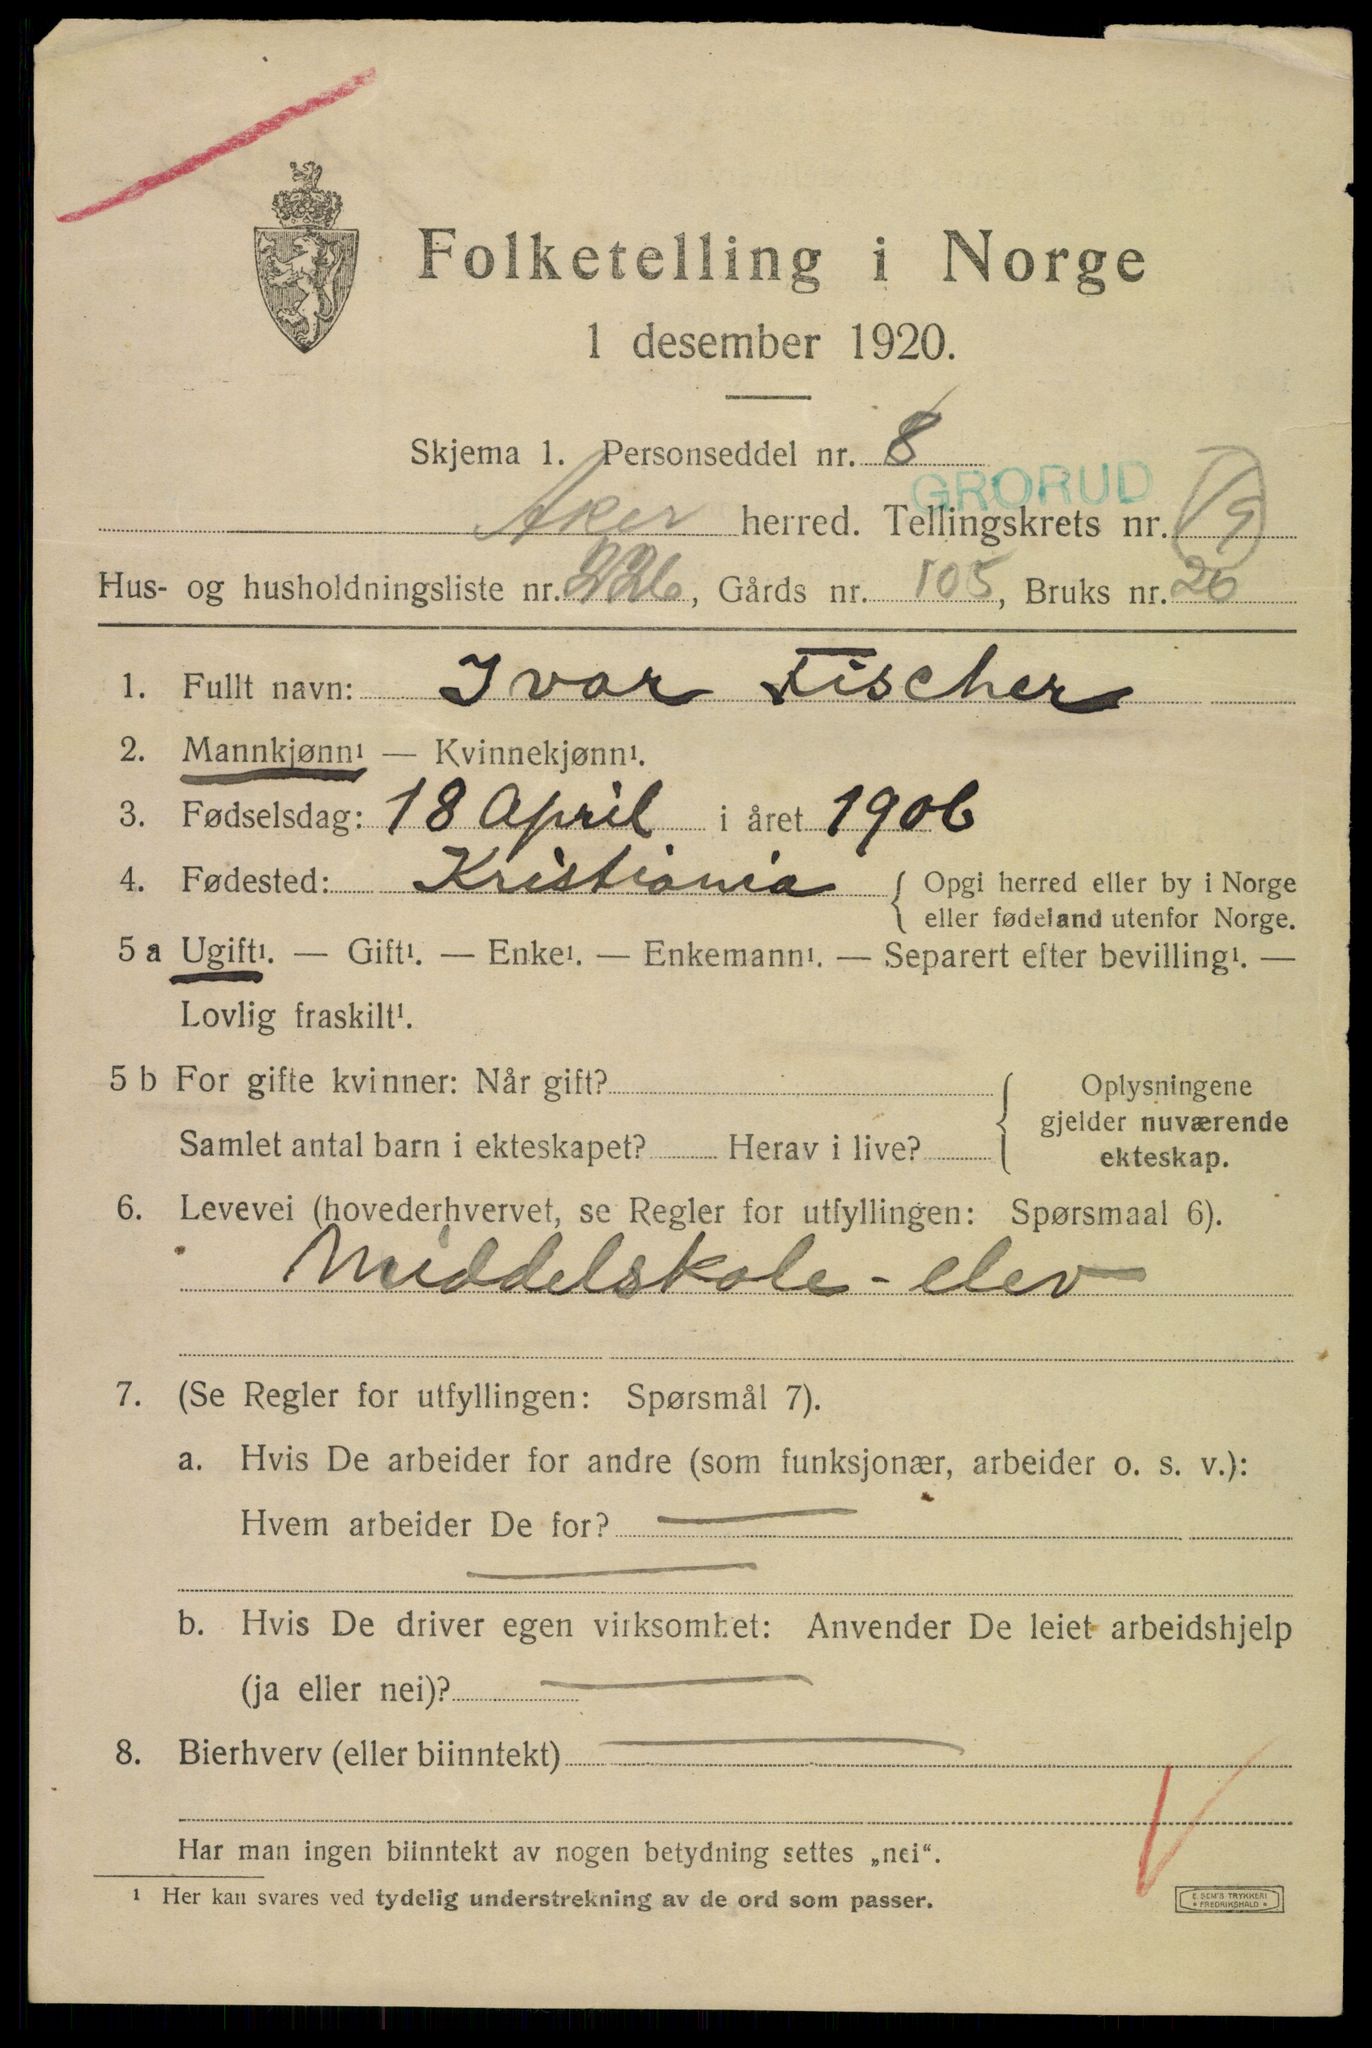 Folketelling i Norge
1 desember 1920.
Skjema 1. Personseddel nr. 8
GRORUD
Aker herred. Tellingskrets nr. 19
Hus- og husholdningsliste nr. 226, Gårds nr. 105, Bruks nr. 20
1. Fullt navn: Ivar Fischer
2. Mannkjønn¹ — Kvinnekjønn¹.
3. Fødselsdag: 18 April i året 1906
4. Fødested: Kristiania { Opgi herred eller by i Norge
eller fødeland utenfor Norge.
5 a Ugift¹. — Gift¹. — Enke¹. — Enkemann¹. — Separert efter bevilling¹. —
Lovlig fraskilt¹.
5 b For gifte kvinner: Når gift?
Samlet antal barn i ekteskapet? Herav i live?
Oplysningene
gjelder nuværende
ekteskap.
6. Levevei (hovederhvervet, se Regler for utfyllingen: Spørsmaal 6).
Middelskole-elev
7. (Se Regler for utfyllingen: Spørsmål 7).
a. Hvis De arbeider for andre (som funksjonær, arbeider o. s. v.):
Hvem arbeider De for? —
—
b. Hvis De driver egen virksomhet: Anvender De leiet arbeidshjelp
(ja eller nei)? —
8. Bierhverv (eller biinntekt) —
Har man ingen biinntekt av nogen betydning settes „nei“.
¹ Her kan svares ved tydelig understrekning av de ord som passer.
E. SEM'S TRYKKERI
* FREDRIKSHALD *